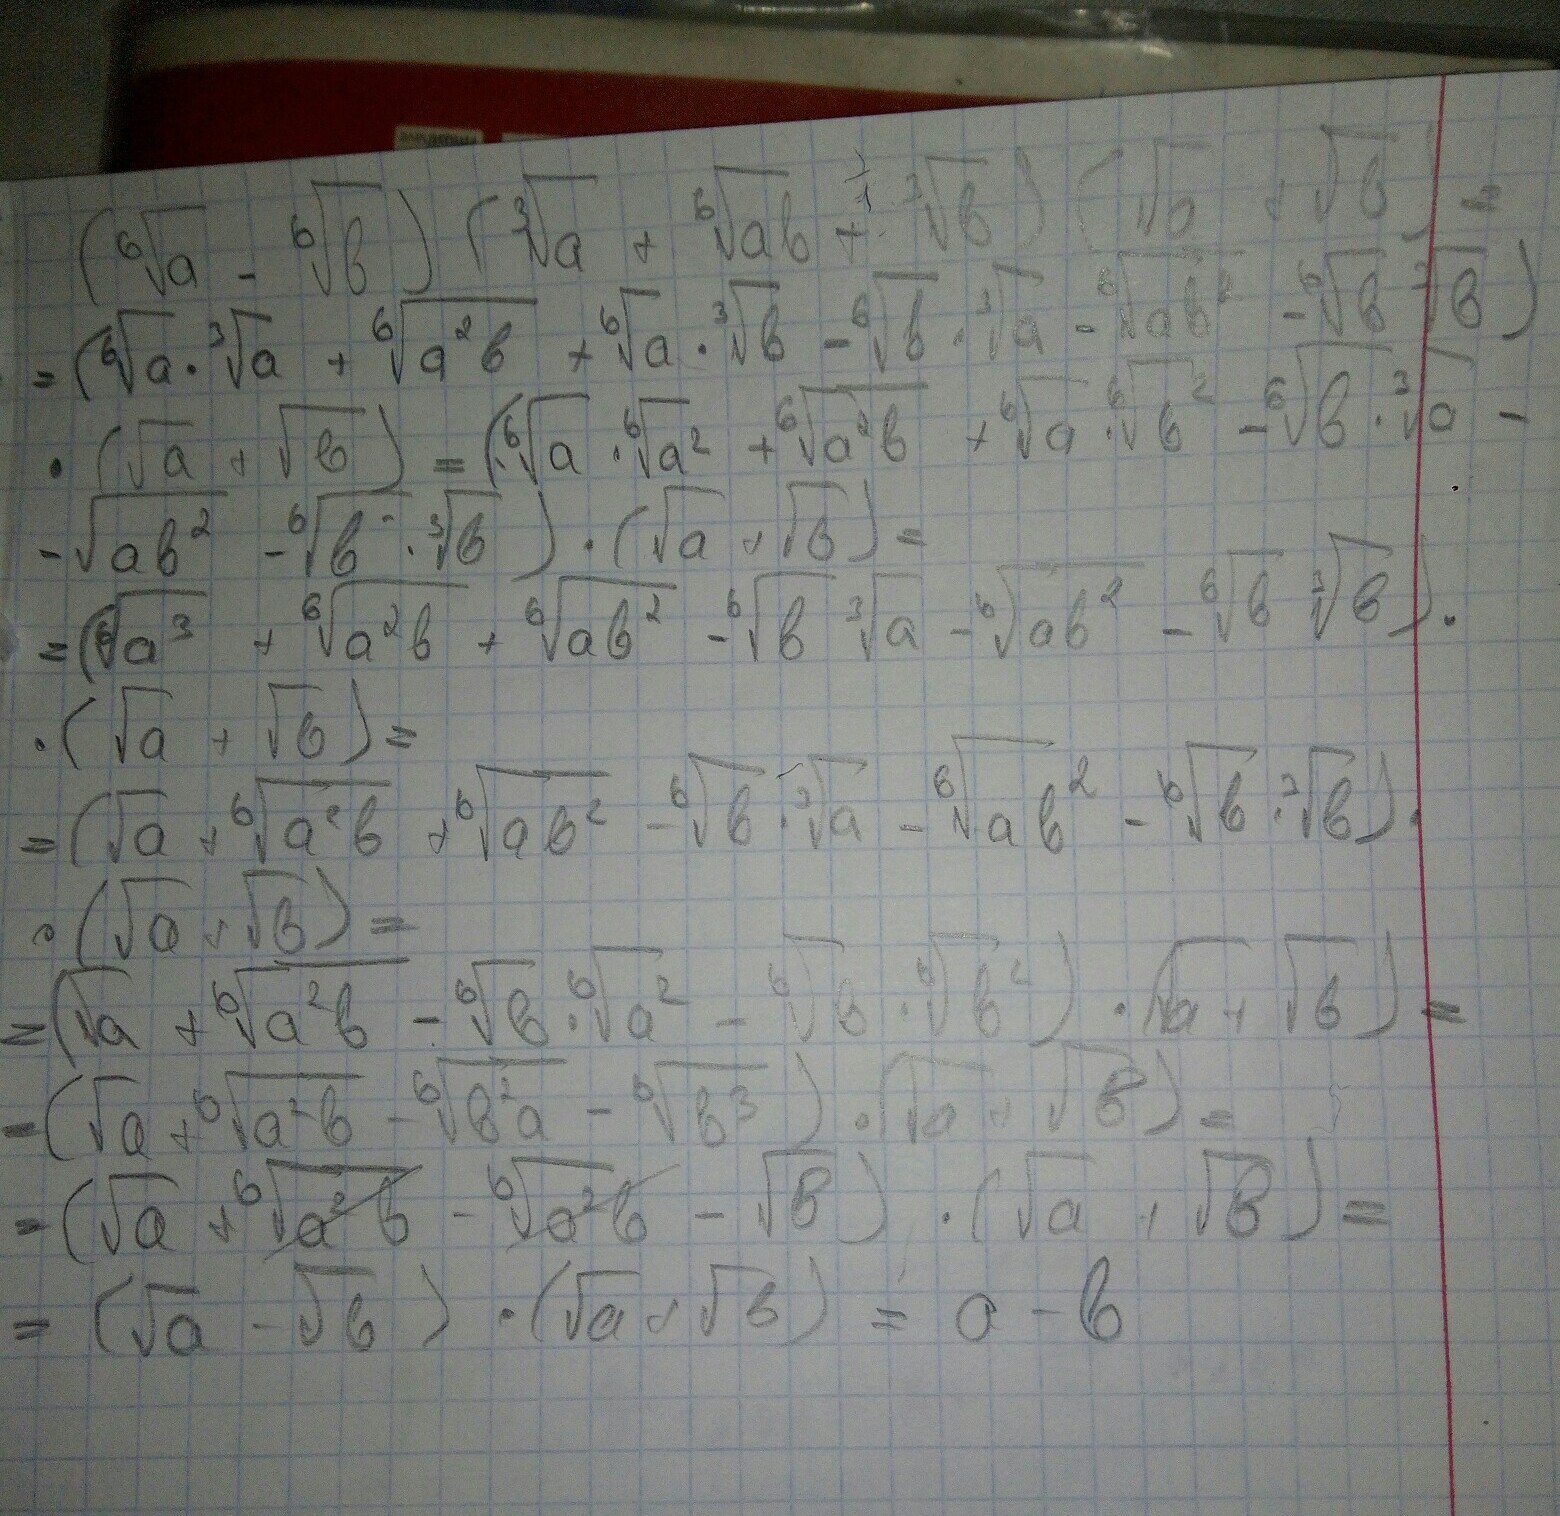 (⁶√a - ⁶√b) (³√a + ⁶√ab + ³√b) (√a + √b) =
= (⁶√a · ³√a + ⁶√a²b + ⁶√a · ³√b - ⁶√b · ³√a - ⁶√ab² - ⁶√b ³√b)
· (√a + √b) = (⁶√a · ⁶√a² + ⁶√a²b + ⁶√a · ⁶√b² - ⁶√b · ³√a -
- √ab² - ⁶√b · ³√b) · (√a + √b) =
= (⁶√a³ + ⁶√a²b + ⁶√ab² - ⁶√b ³√a - ⁶√ab² - ⁶√b ³√b) ·
· (√a + √b) =
= (√a + ⁶√a²b + ⁶√ab² - ⁶√b · ³√a - ⁶√ab² - ⁶√b · ³√b) ·
· (√a + √b) =
= (√a + ⁶√a²b - ⁶√b · ⁶√a² - ⁶√b · ⁶√b²) · (√a + √b) =
= (√a + ⁶√a²b - ⁶√b²a - ⁶√b³) · (√a + √b) =
= (√a + ⁶√a²b - ⁶√a²b - √b) · (√a + √b) =
= (√a - √b) · (√a + √b) = a - b